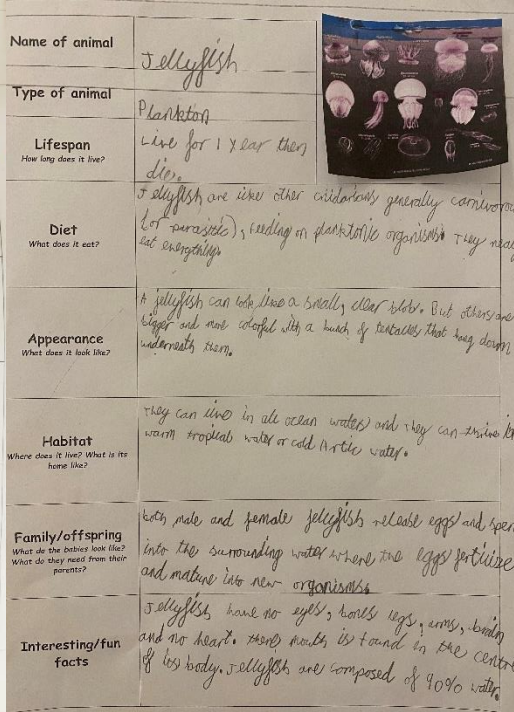 Name of animal
Jellyfish
Type of animal
Plankton
Lifespan
How long does it live?
Live for 1 year then
dies.
Diet
What does it eat?
Jellyfish are like other cnidarians generally carnivorou
(or parasitic), feeding on planktonic organisms. They
eat everything.
Appearance
What does it look like?
A jellyfish can look like a small, clear blob. But others are
bigger and more colorful with a bunch of tentacles that hang down
underneath them.
Habitat
Where does it live? What is its
home like?
They can live in all ocean waters and They can thrive in
warm tropical water or cold Artic water.
Family/offspring
What do the babies look like?
What do they need from their
parents?
both male and female jellyfish release eggs and sper
into the surrounding water where the eggs fertilize
and mature into new organisms.
Interesting/fun
facts
Jellyfish have no eyes, bones legs, arms, brain
and no heart. mouth is found in the centre
of body. Jellyfish are composed of 90% water.